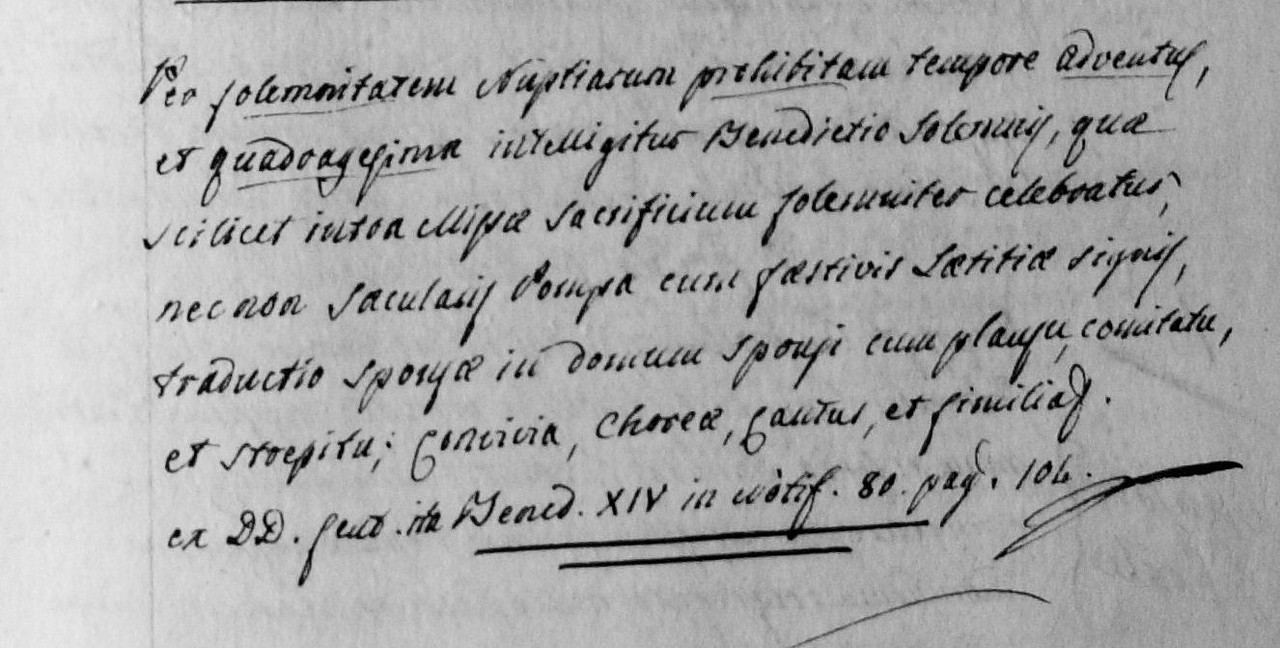 Per solemnitatem Nuptiarum prohibitam tempore adventus,
et quadragesima intelligitur Benedictio Solemnis, quæ
scilicet intra Missæ Sacrificium solemniter celebratur,
nec non Sæcularis Pompa cum fæstivis Lætitiæ signis,
traductio sponsæ in domum sponsi cum plausu, comitatu,
et strepitu; Convivia, Choreæ, Cantus, et similia.
ex DD. sent. ita Bened. XIV in Notif. 80. pag. 104.